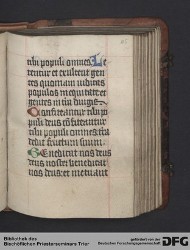 tibi populi omnes Le
tentur et exultent gen
tes quoniam iudicas
populos in equitate et
gentes in tra dirigis
Confiteantur tibi po
puli deus confiteantur
tibi populi omnes terra
dedit fructum suum
Benedicat nos deus
deus noster benedicat
nos deus et metuant
Bibliothek des
Bischöflichen Priesterseminars Trier
gefördert von der
Deutschen Forschungsgemeinschaft
DFG